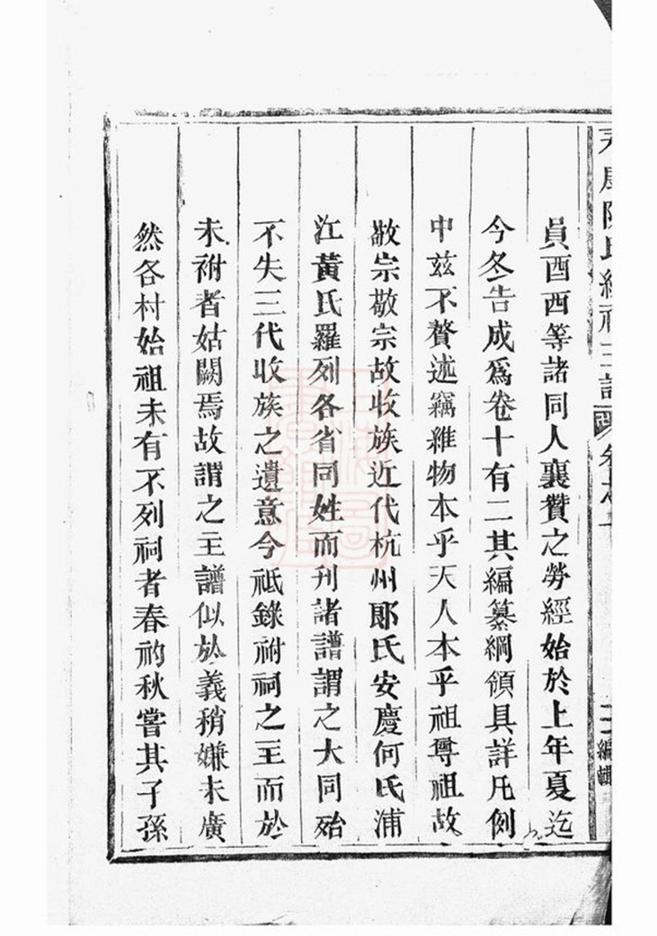 員酉酉等諸同人襄贊之勞經始於上年夏迄
今冬告成爲卷十有二其編纂綱領具詳凡例
中玆不贅述竊維物本乎天人本乎祖尊祖故
敬宗敬宗故收族近代杭州郎氏安慶何氏浦
江黃氏羅列各省同姓而刊諸譜謂之大同殆
不失三代收族之遺意今祗錄祔祠之主而於
未祔者姑闕焉故謂之主譜似於義稍嫌未廣
然各村始祖未有不列祠者春礿秋嘗其子孫
氏 主譜 卷之一
編輯